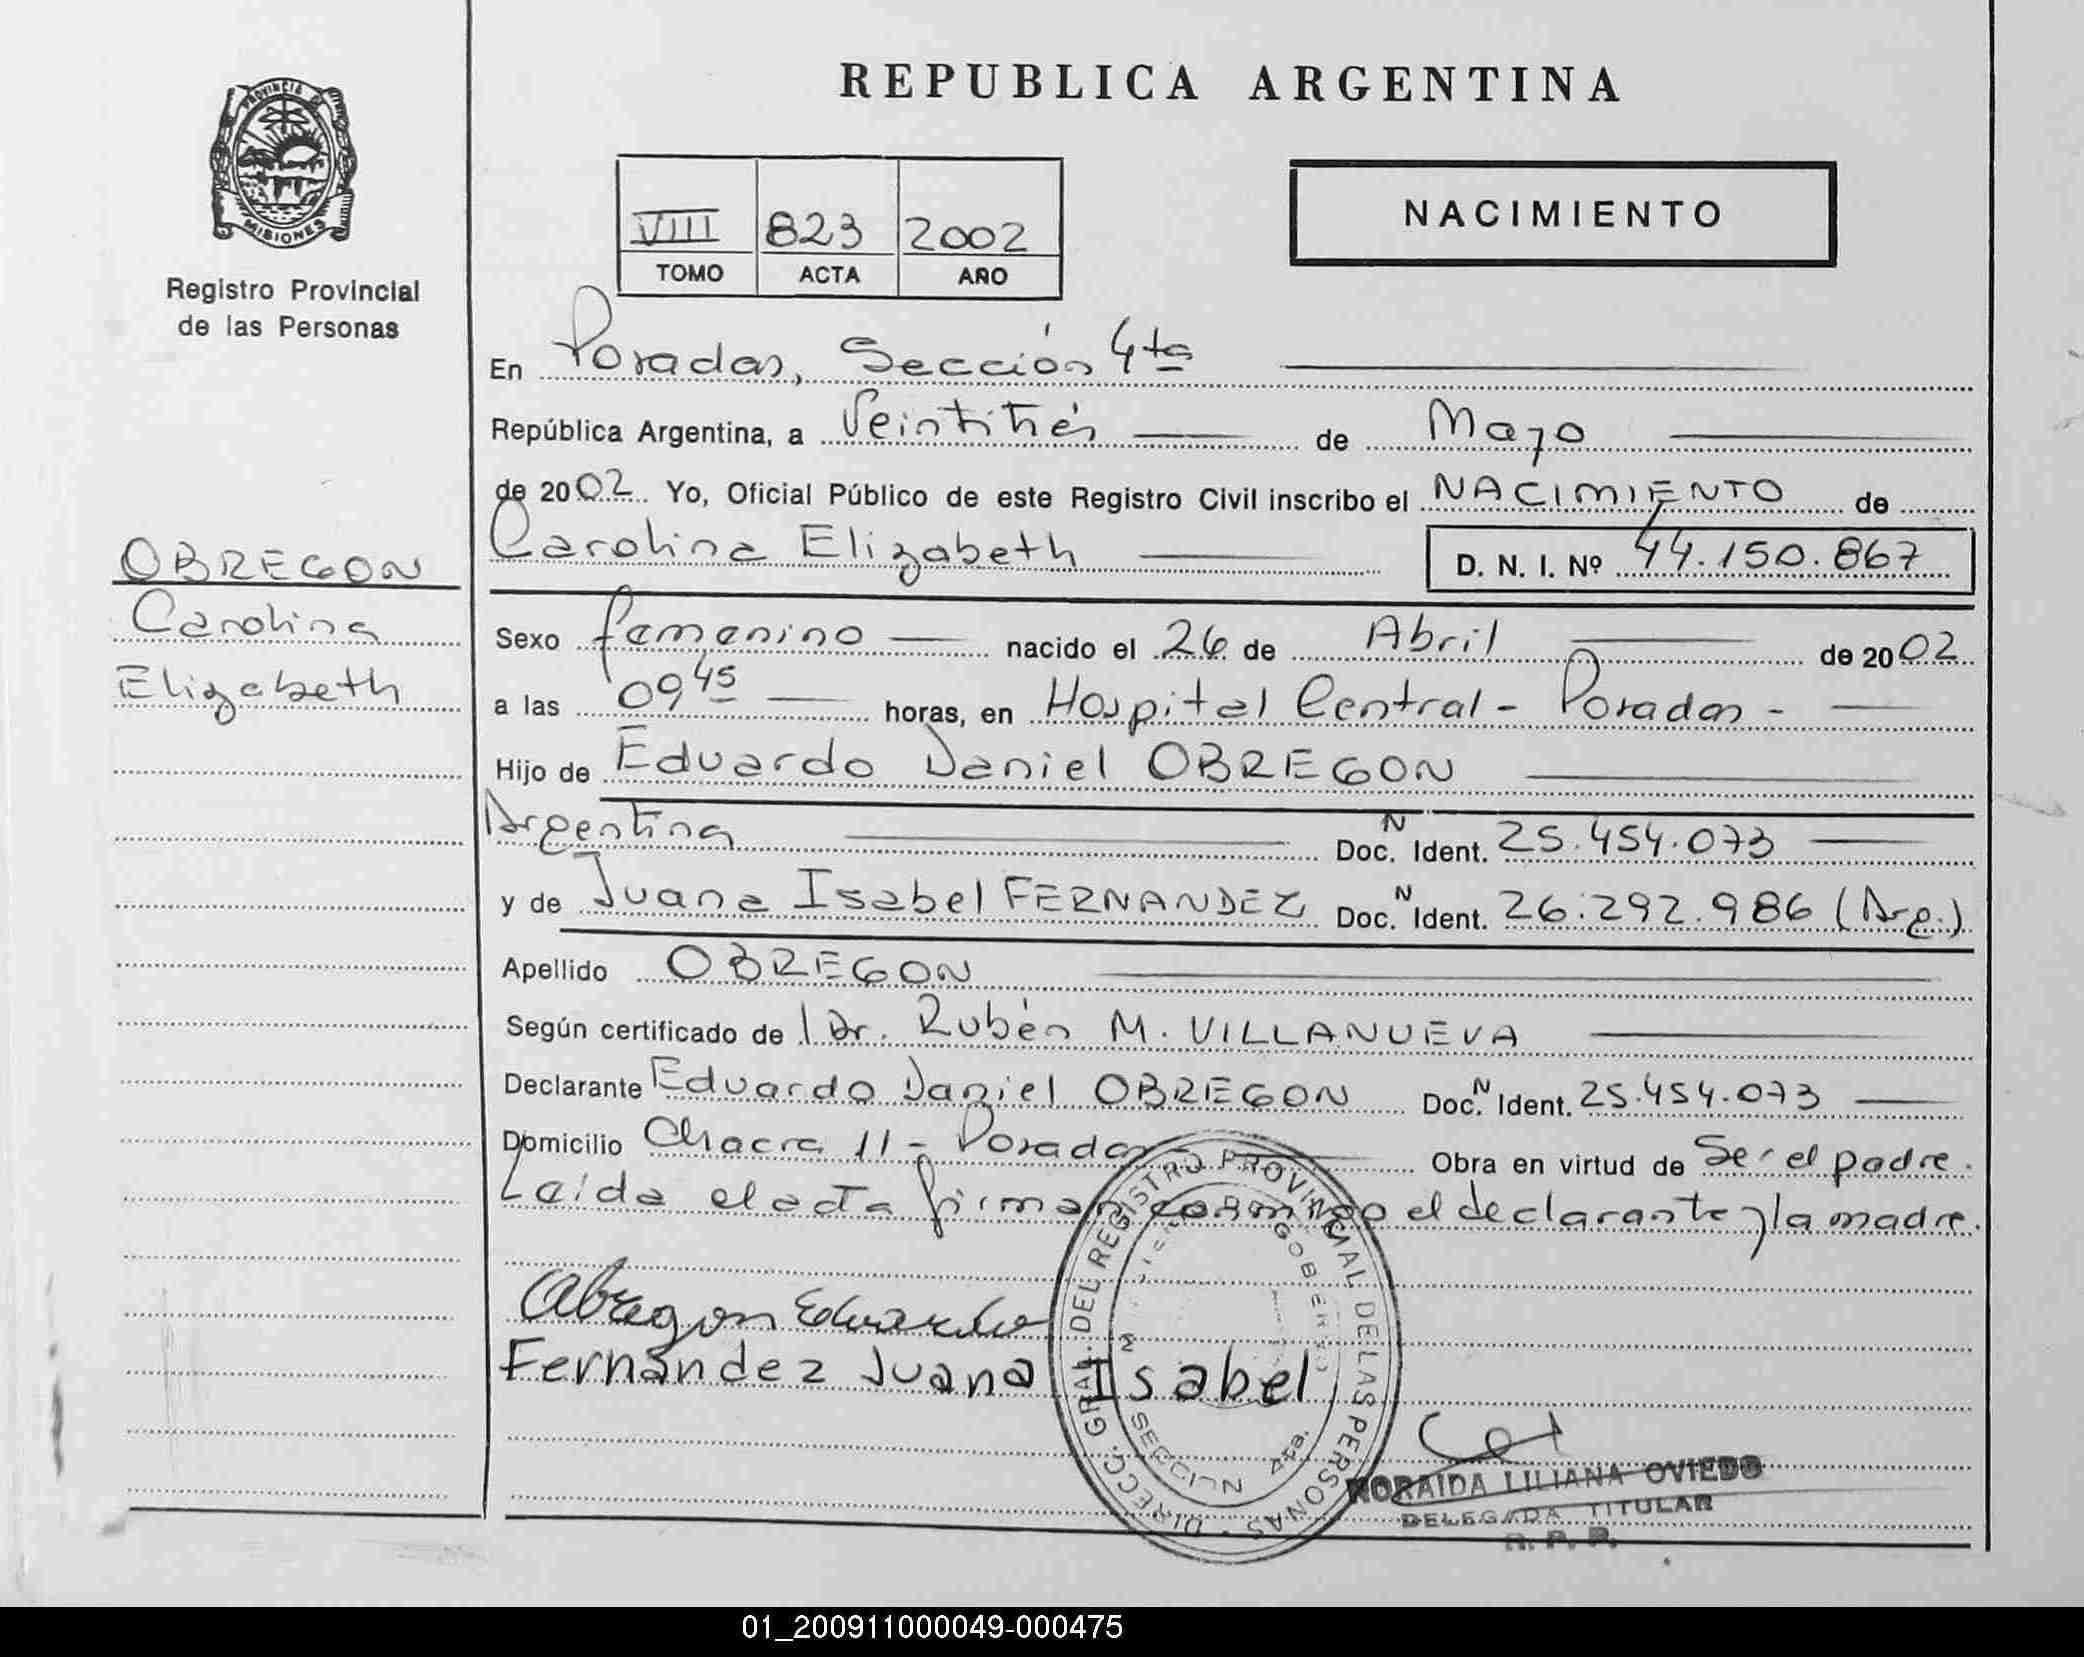 REPUBLICA ARGENTINA
PROVINCIA DE
MISIONES
Registro Provincial
de las Personas
VIII 823 2002
TOMO ACTA AÑO
NACIMIENTO
En Posadas, Sección 4ta
República Argentina, a Veintitrés de Mayo
de 2002 Yo, Oficial Público de este Registro Civil inscribo el NACIMIENTO de
Carolina Elizabeth D. N. I. Nº 44.150.867
OBREGON
Carolina
Elizabeth
Sexo femenino nacido el 26 de Abril de 2002
a las 09 45 horas, en Hospital Central - Posadas -
Hijo de Eduardo Daniel OBREGON
Argentina Doc. N Ident. 25.454.073
y de Juana Isabel FERNANDEZ Doc. N Ident. 26.292.986 (Arg.)
Apellido OBREGON
Según certificado de Dr. Rubén M. VILLANUEVA
Declarante Eduardo Daniel OBREGON Doc. N Ident. 25.454.073
Domicilio Chacra 11 - Posadas Obra en virtud de Ser el padre.
Leída el acta firman conmigo el declarante y la madre.
Obregon Eduardo
Fernández Juana Isabel
DIRECC. GRAL. DEL REGISTRO PROVINCIAL DE LAS PERSONAS
SECCION 4ta.
NORAIDA LILIANA OVIEDO
DELEGADA TITULAR
R. P. P.
01_200911000049-000475